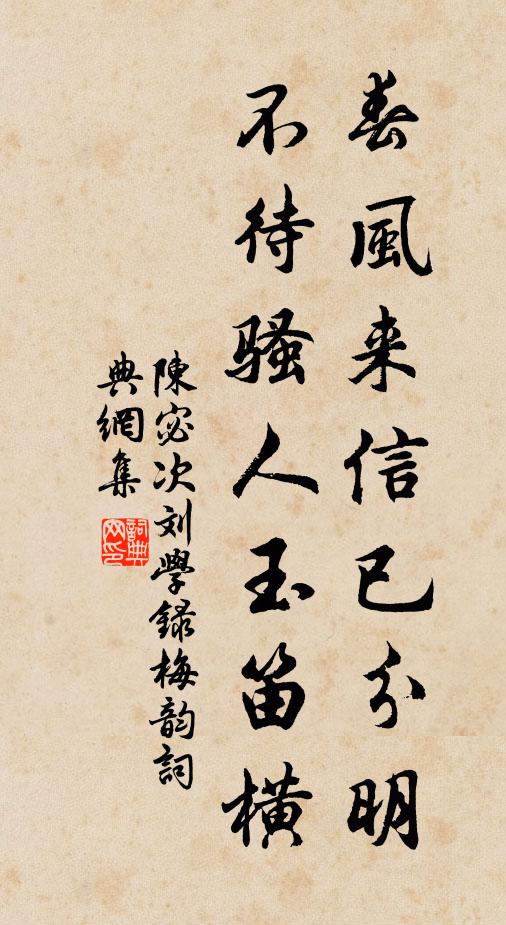 春風来信已分明
不待骚人玉笛橫
陳宓次刘學録梅韵詞
典網集
詞典
网印